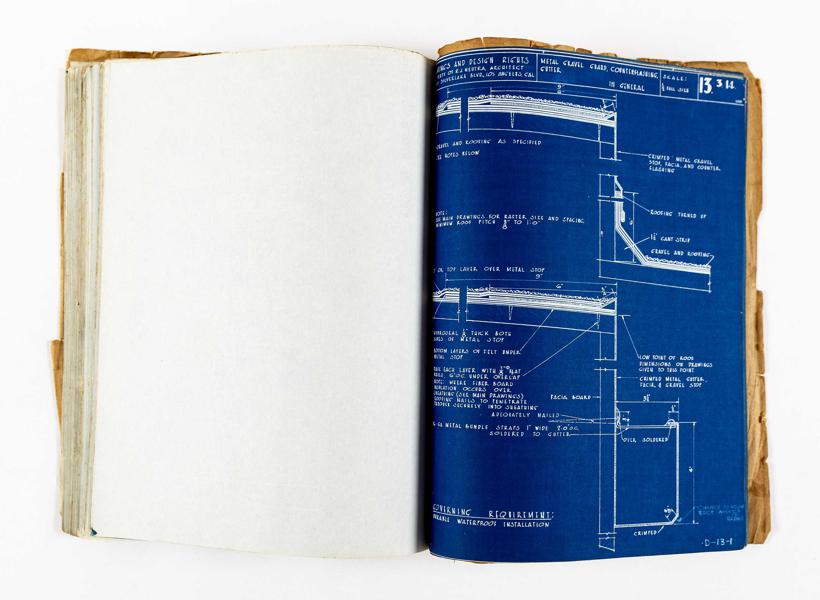 AND DESIGN RIGHTS
OF R.J. NEUTRA, ARCHITECT
SILVERLAKE BLVD, LOS ANGELES, CAL
METAL GRAVEL GUARD, COUNTERFLASHING,
GUTTER
IN GENERAL
SCALE:
FULL SIZE
13
GRAVEL AND ROOFING AS SPECIFIED
NOTES BELOW
CRIMPED METAL GRAVEL
STOP, FACIA, AND COUNTER.
FLASHING
NOTE:
SEE MAIN DRAWINGS FOR RAFTER SIZE AND SPACING
MINIMUM ROOF PITCH TO 1'-0"
ROOFING TURNED UP
CANT STRIP
GRAVEL AND ROOFING
TOP LAYER OVER METAL STOP
9"
6"
THICK BOTH
SIDES OF METAL STOP
BOTTOM LAYERS OF FELT UNDER
METAL STOP
EACH LAYER WITH FLAT
NAILS, 6" O.C. UNDER OVERLAP
NOTE: WHERE FIBER BOARD
INSULATION OCCURS OVER
SHEATHING (SEE MAIN DRAWINGS)
ROOFING NAILS TO PENETRATE
SECURELY INTO SHEATHING
ADEQUATELY NAILED
METAL STRAPS 1" WIDE 2'-0" O.C.
SOLDERED TO GUTTER
LOW POINT OF ROOF
DIMENSIONS ON DRAWINGS
GIVEN TO THIS POINT
CRIMPED METAL GUTTER,
FACIA, & GRAVEL STOP
FACIA BOARD
OVER SOLDERED
CRIMPED
GOVERNING REQUIREMENT:
DURABLE WATERPROOF INSTALLATION
D-13-1